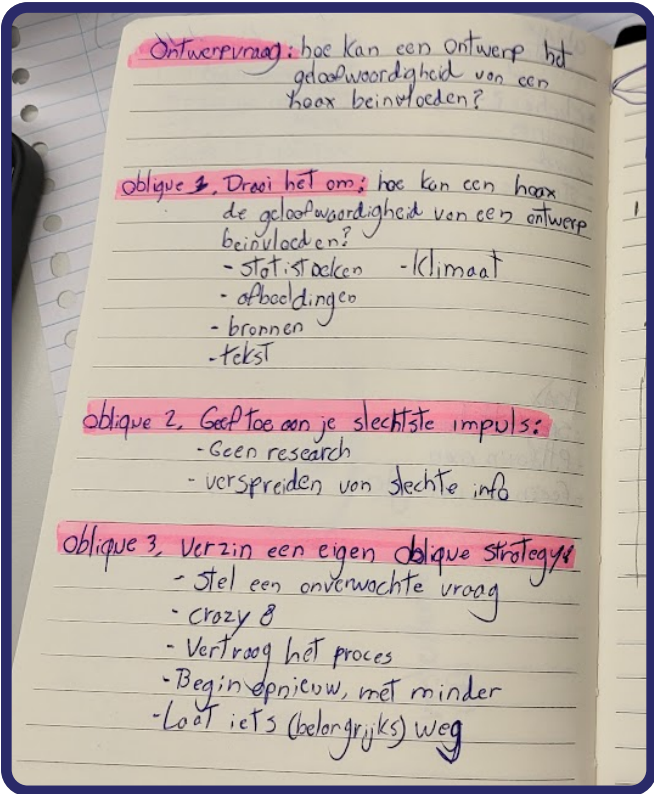 Ontwerpvraag: hoe kan een ontwerp het
geloofwoordigheid van een
hoax beinvloeden?
oblique 1, Draai het om: hoe kan een hoax
de geloofwaardigheid van een ontwerp
beinvloeden?
- statistoeken - klimaat
- afbeeldingen
- bronnen
- tekst
oblique 2, Geef toe aan je slechtste impuls:
- Geen research
- verspreiden van slechte info
oblique 3, verzin een eigen oblique strategy:
- stel een onverwachte vraag
- crazy 8
- Vertraag het proces
- Begin opnieuw, met minder
- Laat iets (belangrijks) weg